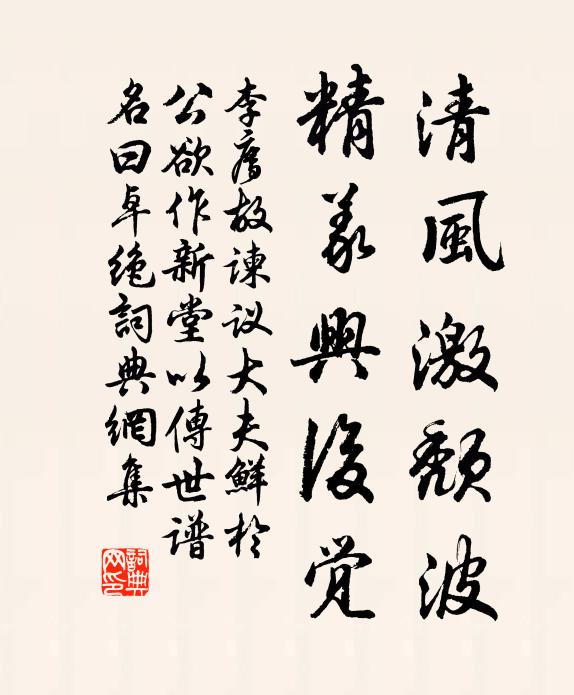 清風激頹波
精義興後觉
李廌故諫议大夫鮮於
公欲作新堂以傳世谱
名曰卓絶詞典網集
詞典網印